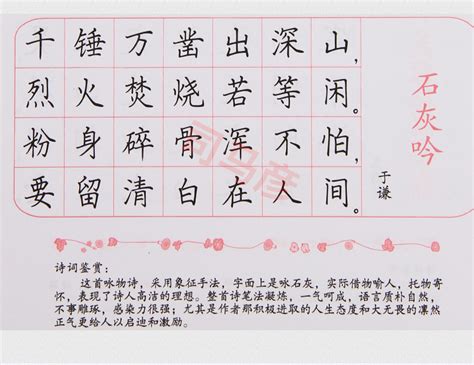 石灰吟
于谦
千锤万凿出深山，
烈火焚烧若等闲。
粉身碎骨浑不怕，
要留清白在人间。
司马彦
诗词鉴赏：
这首咏物诗，采用象征手法，字面上是咏石灰，实际借物喻人，托物寄
怀，表现了诗人高洁的理想。整首诗笔法凝炼，一气呵成，语言质朴自然，
不事雕琢，感染力很强；尤其是作者那积极进取的人生态度和大无畏的凛然
正气更给人以启迪和激励。